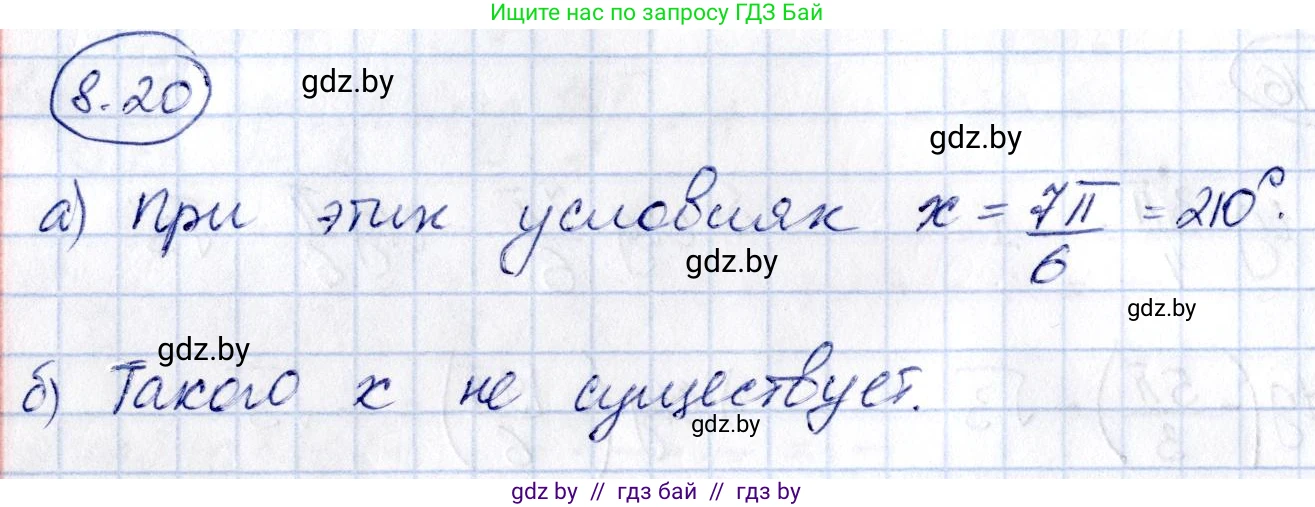 Ищите нас по запросу ГДЗ Бай
8.20
gdz.by
gdz.by
а) При этих условиях x = 7π/6 = 210°.
gdz.by
gdz.by
gdz.by
б) Такого x не существует.
gdz.by
gdz by // гдз бай // гдз by